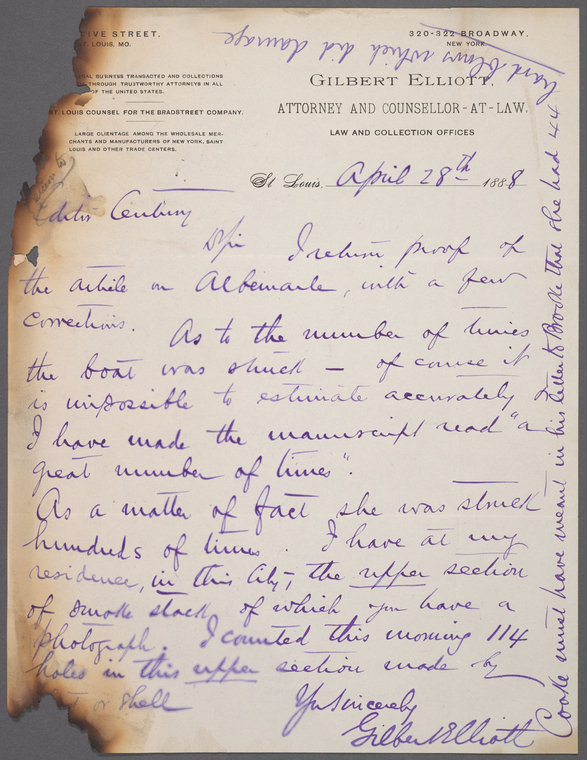 IVE STREET,
ST. LOUIS, MO.
320-322 BROADWAY,
NEW YORK.
AL BUSINESS TRANSACTED AND COLLECTIONS
THROUGH TRUSTWORTHY ATTORNEYS IN ALL
OF THE UNITED STATES.
ST. LOUIS COUNSEL FOR THE BRADSTREET COMPANY.
LARGE CLIENTAGE AMONG THE WHOLESALE MER-
CHANTS AND MANUFACTURERS OF NEW YORK, SAINT
LOUIS AND OTHER TRADE CENTERS.
GILBERT ELLIOTT,
ATTORNEY AND COUNSELLOR-AT-LAW.
LAW AND COLLECTION OFFICES
St Louis, April 28th 1888
Editor Century
D Sir I return proof of
the article on Albemarle, with a few
corrections. As to the number of times
the boat was struck — of course it
is impossible to estimate accurately
I have made the manuscript read "a
great number of times".
As a matter of fact she was struck
hundreds of times. I have at my
residence, in this City, the upper section
of smoke stack of which you have a
photograph. I counted this morning 114
holes in this upper section made by
or shell
Yrs Sincerely
Gilbert Elliott
Cooke must have meant in his letter to Brooke that she had 44
hard blows which did damage